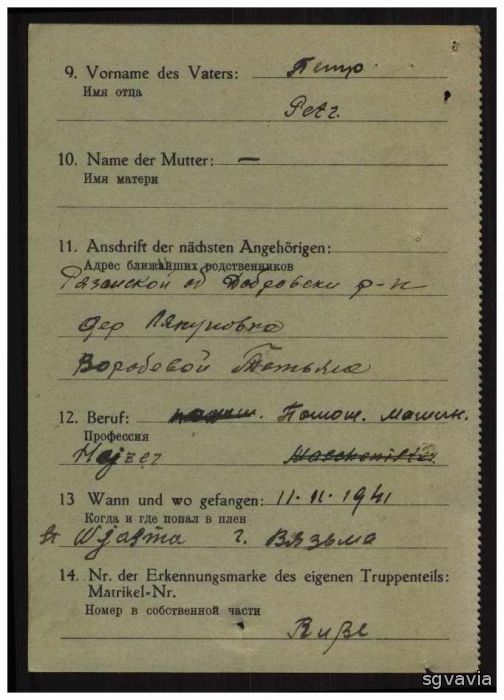 9. Vorname des Vaters: Петр
Имя отца
Petr.
10. Name der Mutter: —
Имя матери
11. Anschrift der nächsten Angehörigen:
Адрес ближайших родственников
Рязанской об Добровски р-н
дер Ляпуновка
Воробевой Татьяна
12. Beruf: Помош. машин.
Профессия
Hajzer
13 Wann und wo gefangen: 11.11.1941
Когда и где попал в плен
Wjasma г. Вязьма
14. Nr. der Erkennungsmarke des eigenen Truppenteils:
Matrikel-Nr.
Номер в собственной части
sgvavia